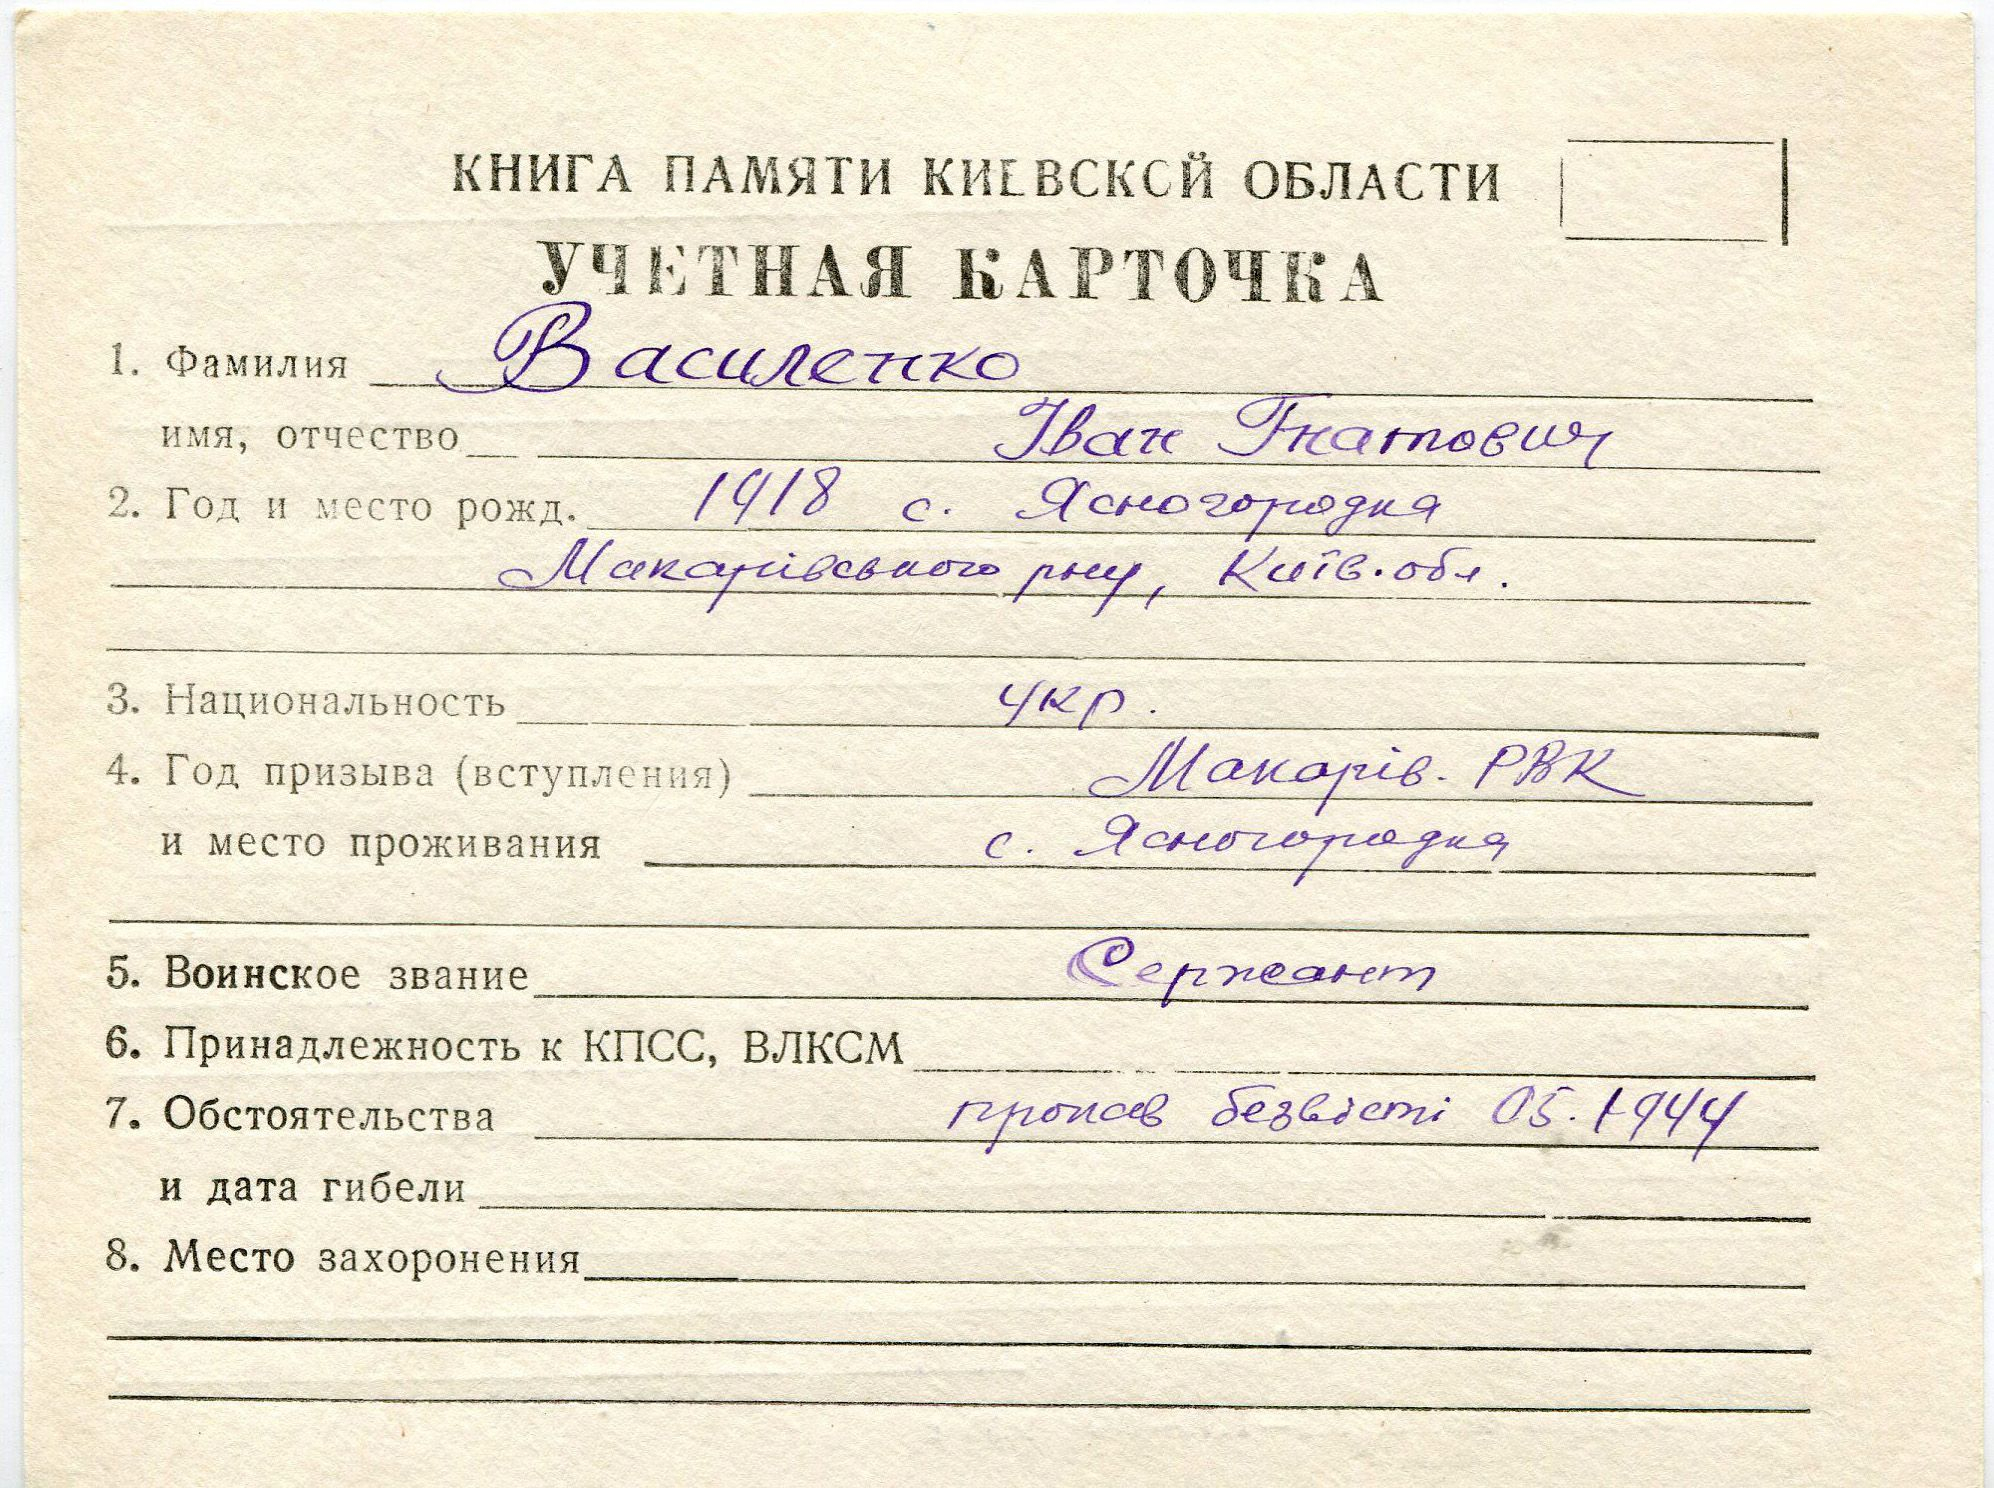 КНИГА ПАМЯТИ КИЕВСКОЙ ОБЛАСТИ
УЧЕТНАЯ КАРТОЧКА
1. Фамилия Василенко
имя, отчество Іван Гнатович
2. Год и место рожд. 1918 с. Ясногородка
Макарівського р-ну, Київ. обл.
3. Национальность укр.
4. Год призыва (вступления) Макарів. РВК
и место проживания с. Ясногородка
5. Воинское звание Сержант
6. Принадлежность к КПСС, ВЛКСМ
7. Обстоятельства пропав безвісті 05.1944
и дата гибели
8. Место захоронения